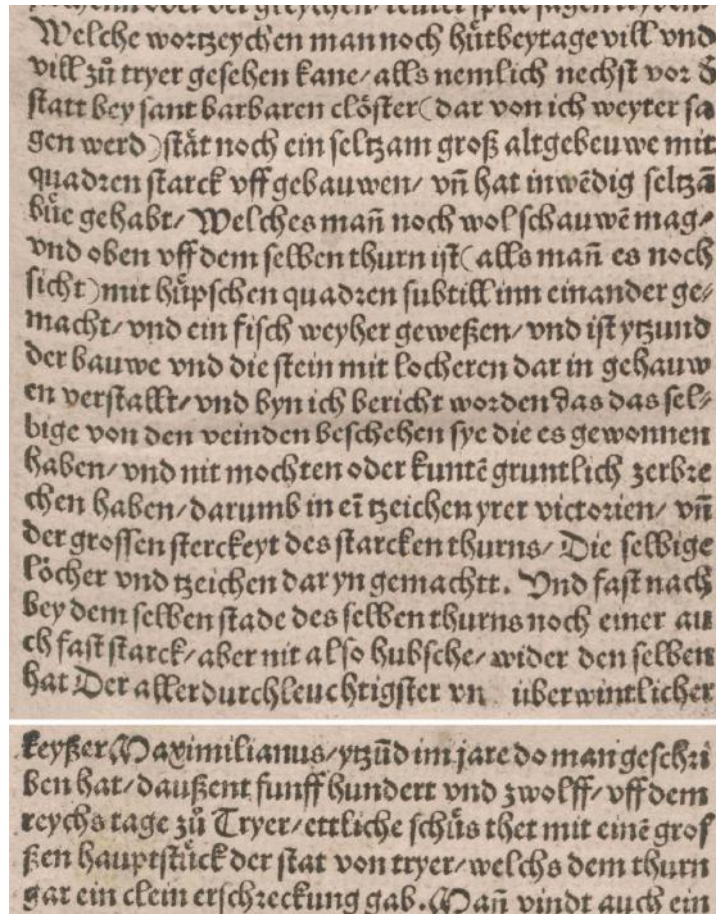 Welche wortzeychen man noch hütbeytage vill vnd
vill zů tryer gesehen kane/ alls nemlich nechst vor d̕
statt bey sant barbaren clöster(dar von ich weyter sa
gen werd)stät noch ein seltzam groß altgebeuwe mit
quadren starck vff gebauwen/ vn̄ hat inwēdig seltzā
büe gehabt/ Welches man̄ noch wol schauwē mag/
vnd oben vff dem selben thurn ist(alls man̄ es noch
sicht)mit hüpschen quadren subtill inn einander ge/
macht/ vnd ein fisch weyher geweßen/ vnd ist ytzund
der bauwe vnd die stein mit locheren dar in gehauw
en verstallt/ vnd byn ich bericht worden das das sel/
bige von den veinden beschehen sye die es gewonnen
haben/ vnd nit mochten oder kuntē gruntlich zerbre
chen haben/ darumb in eī tzeichen yrer victorien/ vn̄
der grossen sterckeyt des starcken thurns/ Die selbige
löcher vnd tzeichen dar yn gemachtt. Vnd fast nach
bey dem selben stade des selben thurns noch einer au
ch fast starck/ aber nit also hubsche/ wider den selben
hat Der allerdurchleuchtigster vn überwintlicher
keyßer Maximilianus/ ytzūd im jare do man geschri
ben hat/ daußent funff hundert vnd zwolff/ vff dem
reychs tage zů Tryer/ ettliche schüs thet mit einē grof
ßen hauptstück der stat von tryer/ welchs dem thurn
gar ein clein erschreckung gab. Man̄ vindt auch ein